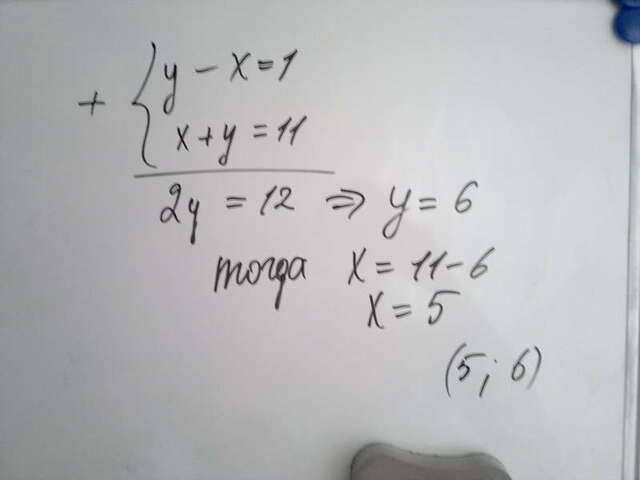 + { y - x = 1
x + y = 11
2y = 12 => y = 6
тогда x = 11 - 6
x = 5
(5; 6)